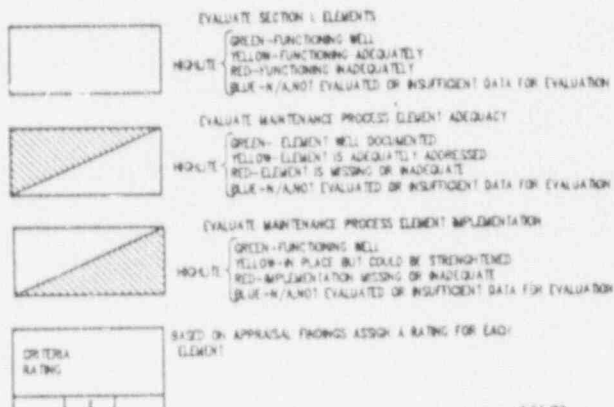 EVALUATE SECTION I ELEMENTS
GREEN-FUNCTIONING WELL
YELLOW-FUNCTIONING ADEQUATELY
HIGHLITE
RED-FUNCTIONING INADEQUATELY
BLUE-N/A,NOT EVALUATED OR INSUFFICIENT DATA FOR EVALUATION
EVALUATE MAINTENANCE PROCESS ELEMENT ADEQUACY
GREEN- ELEMENT WELL DOCUMENTED
YELLOW-ELEMENT IS ADEQUATELY ADDRESSED
HIGHLITE
RED-ELEMENT IS MISSING OR INADEQUATE
BLUE-N/A,NOT EVALUATED OR INSUFFICIENT DATA FOR EVALUATION
EVALUATE MAINTENANCE PROCESS ELEMENT IMPLEMENTATION
GREEN-FUNCTIONING WELL
YELLOW-IN PLACE BUT COULD BE STRENGHTENED
HIGHLITE
RED-IMPLEMENTATION MISSING OR INADEQUATE
BLUE-N/A,NOT EVALUATED OR INSUFFICIENT DATA FOR EVALUATION
BASED ON APPRAISAL FINDINGS ASSIGN A RATING FOR EACH
ELEMENT
CRITERIA
RATING